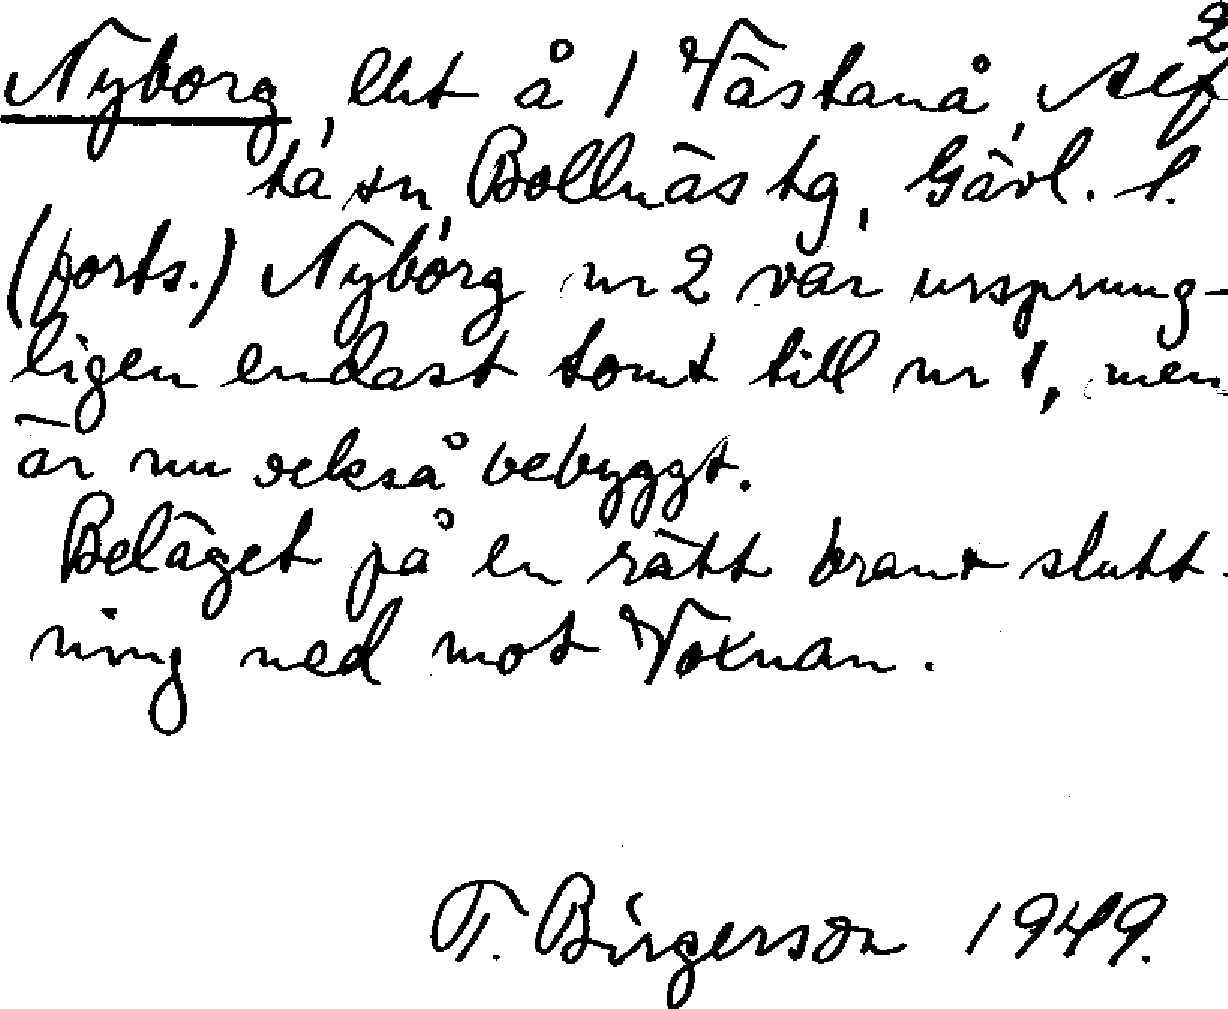 2
Nyborg, lht å 1 Västanå, Alf
ta sn, Bollnäs tg, Gävl. l.
(forts.) Nyborg nr 2 var ursprung-
ligen endast tomt till nr 1, men
är nu också bebyggt.
Beläget på en rätt brant slutt-
ning ned mot Voxnan.
T. Birgerson 1949.